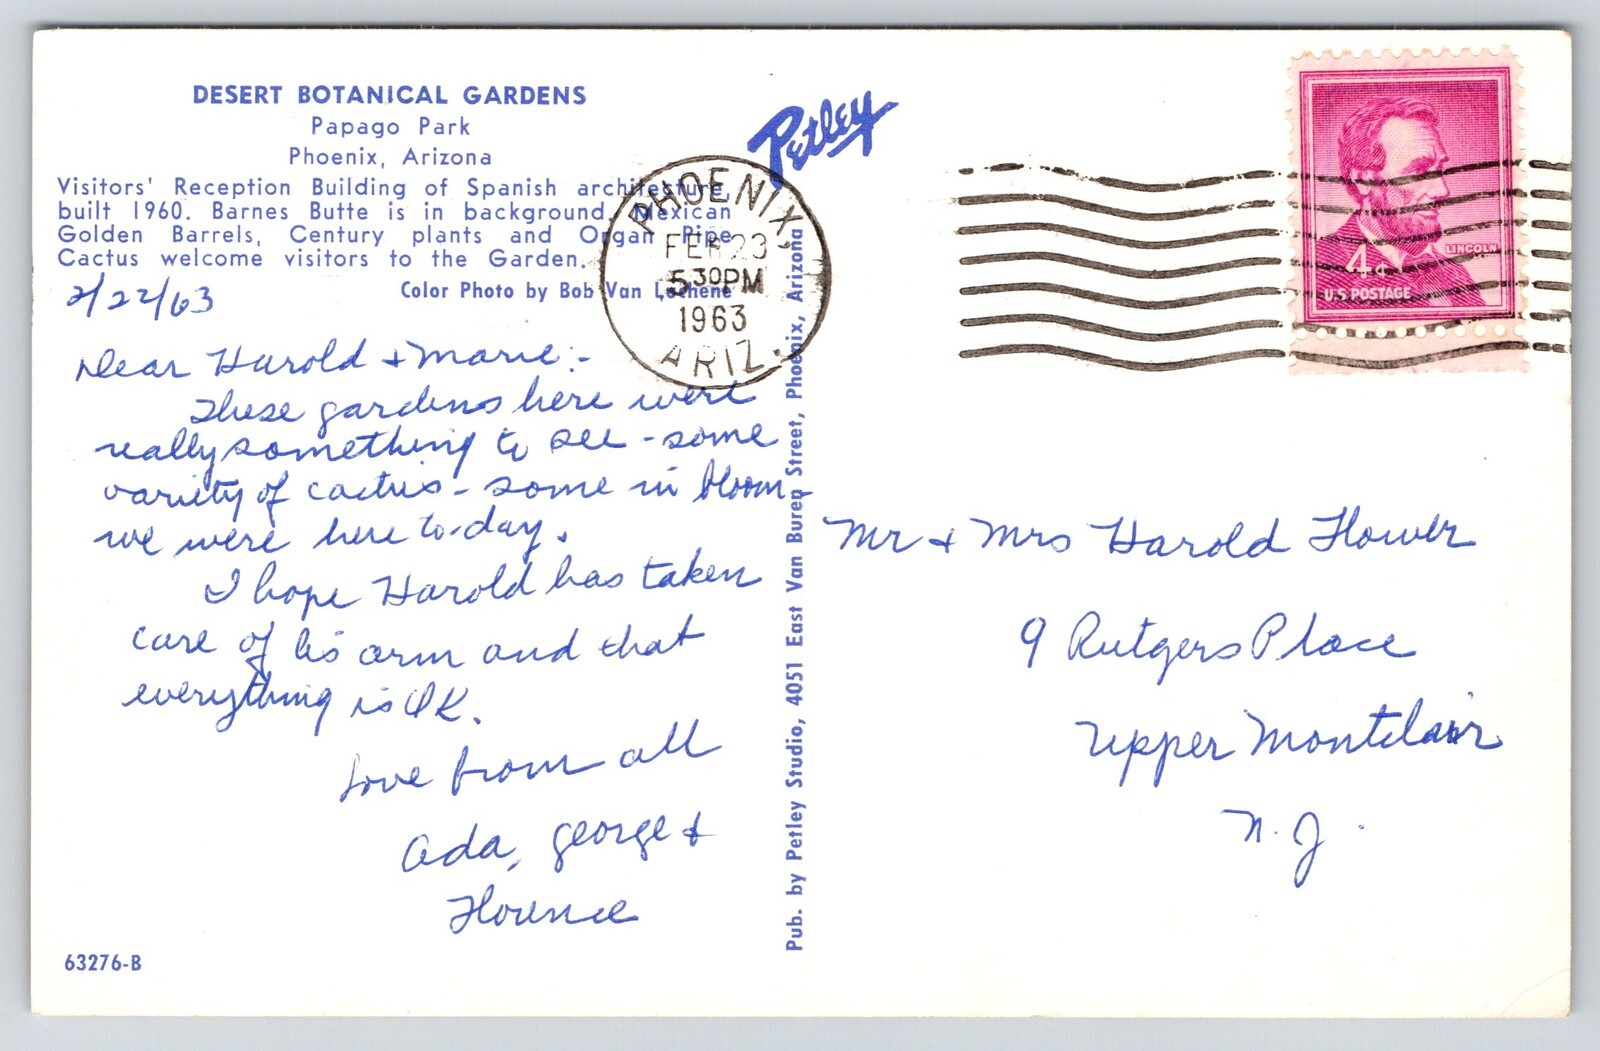 DESERT BOTANICAL GARDENS
Papago Park
Phoenix, Arizona
Visitors' Reception Building of Spanish architecture
built 1960. Barnes Butte is in background. Mexican
Golden Barrels, Century plants and Organ Pipe
Cactus welcome visitors to the Garden.
Color Photo by Bob Van Luchene
2/22/63
Dear Harold & Marie:-
These gardens here were
really something to see - some
variety of cactus - some in bloom,
we were here to-day.
I hope Harold has taken
care of his arm and that
everything is OK.
Love from all
Ada, George &
Florence
63276-B
Petley
PHOENIX,
FEB 23
5 30 PM
1963
ARIZ.
Pub. by Petley Studio, 4051 East Van Buren Street, Phoenix, Arizona
LINCOLN
4¢
U.S. POSTAGE
Mr & Mrs Harold Flower
9 Rutgers Place
Upper Montclair
N. J.